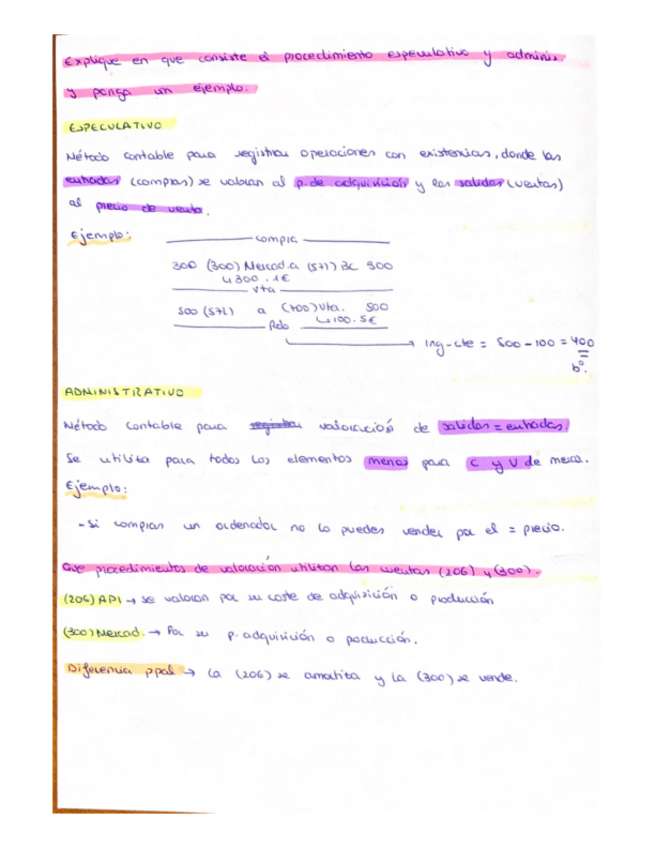 Explique en que consiste el procedimiento especulativo y adminis.
y ponga un ejemplo.
ESPECULATIVO
Método contable para registrar operaciones con existencias, donde las
entradas (compras) se valoran al p. de adquisición y las salidas (ventas)
al precio de venta.
Ejemplo:
compra
300 (300) Mercad. a (571) Bc 300
↳ 300 . 1€
Vta
500 (572) a (700) Vta. 500
↳ 100. 5€
Rdo
→ Ing-cte = 500 - 100 = 400
bº.
ADMINISTRATIVO
Método contable para registrar valoración de salidas = entradas.
Se utiliza para todos los elementos menos para C y V de mercs.
Ejemplo:
- Si compras un ordenador no lo puedes vender por el = precio.
Que procedimientos de valoración utilizan las cuentas (206) y (300).
(206) API → se valoran por su coste de adquisición o producción
(300) Mercad. → Por su p. adquisición o producción.
Diferencia ppal → La (206) se amortiza y la (300) se vende.